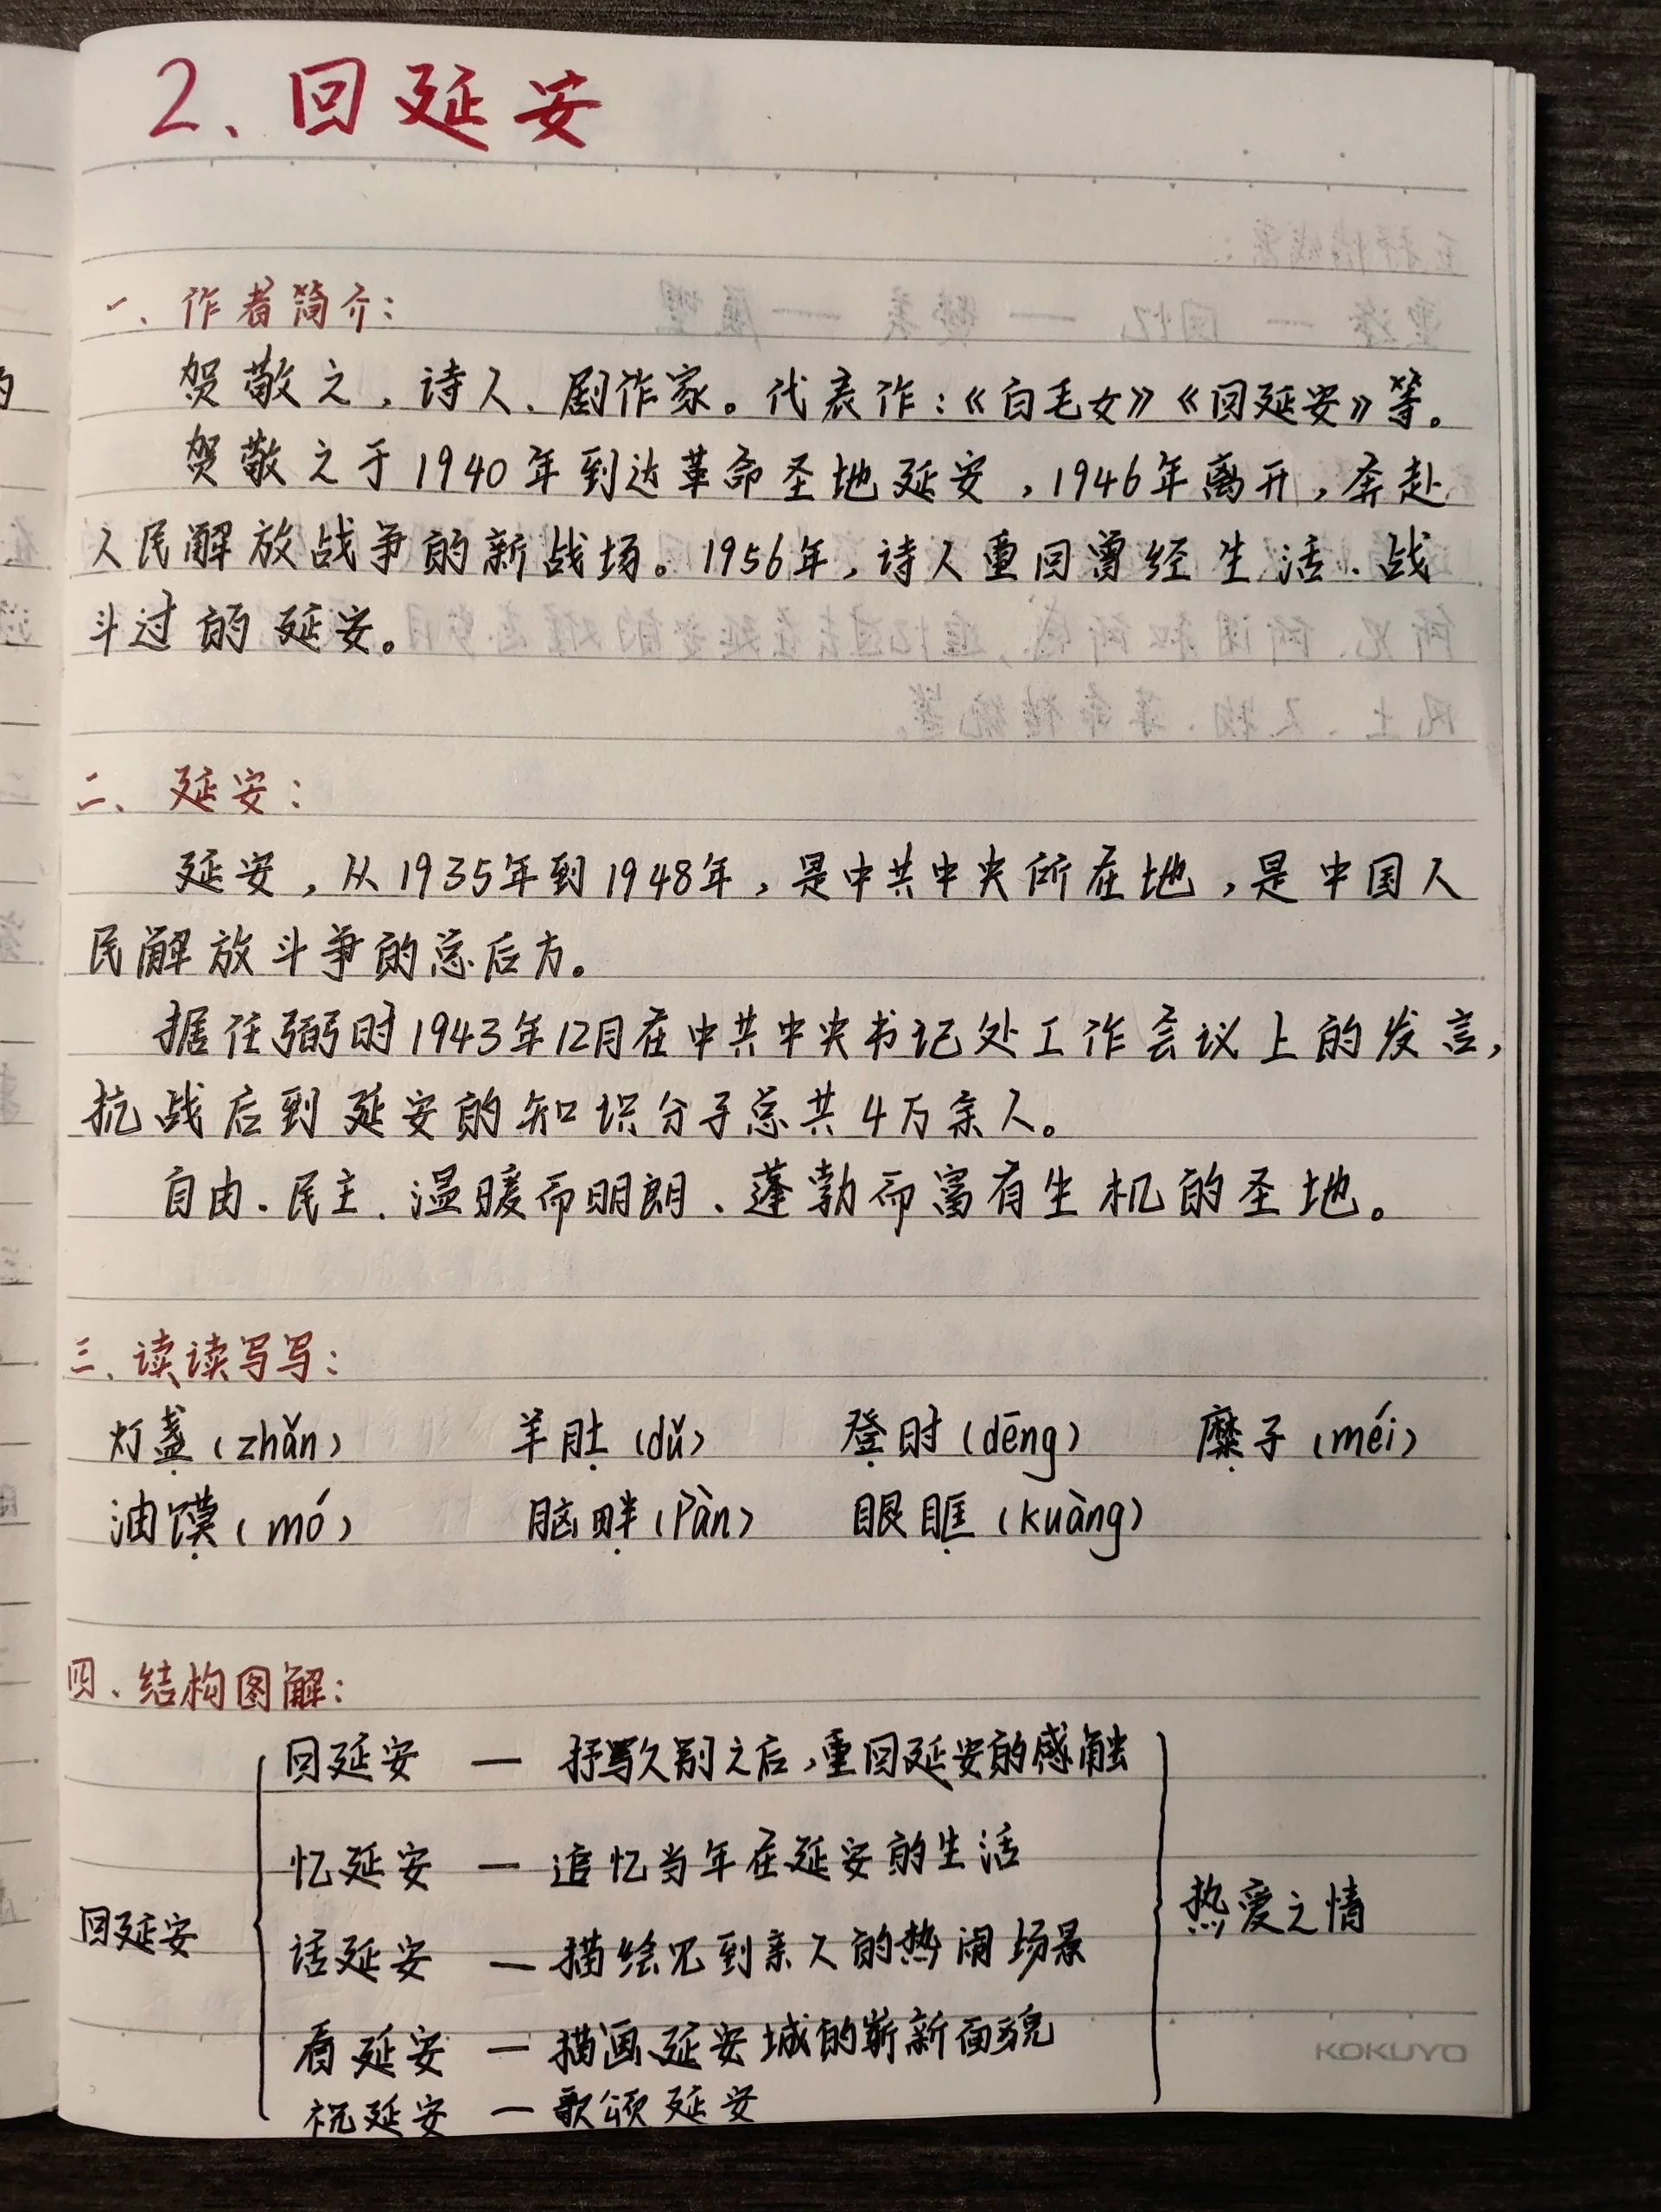 2、回延安
一、作者简介：
贺敬之，诗人、剧作家。代表作：《白毛女》《回延安》等。
贺敬之于1940年到达革命圣地延安，1946年离开，奔赴
人民解放战争的新战场。1956年，诗人重回曾经生活、战
斗过的延安。
二、延安：
延安，从1935年到1948年，是中共中央所在地，是中国人
民解放斗争的总后方。
据任弼时1943年12月在中共中央书记处工作会议上的发言，
抗战后到延安的知识分子总共4万余人。
自由、民主、温暖而明朗、蓬勃而富有生机的圣地。
三、读读写写：
灯盏（zhǎn） 羊肚（dǔ） 登时（dēng） 糜子（méi）
油馍（mó） 脑畔（pàn） 眼眶（kuàng）
四、结构图解：
回延安
回延安 — 抒写久别之后，重回延安的感触
忆延安 — 追忆当年在延安的生活
话延安 — 描绘见到亲人的热闹场景
看延安 — 描画延安城的崭新面貌
祝延安 — 歌颂延安
热爱之情
KOKUYO